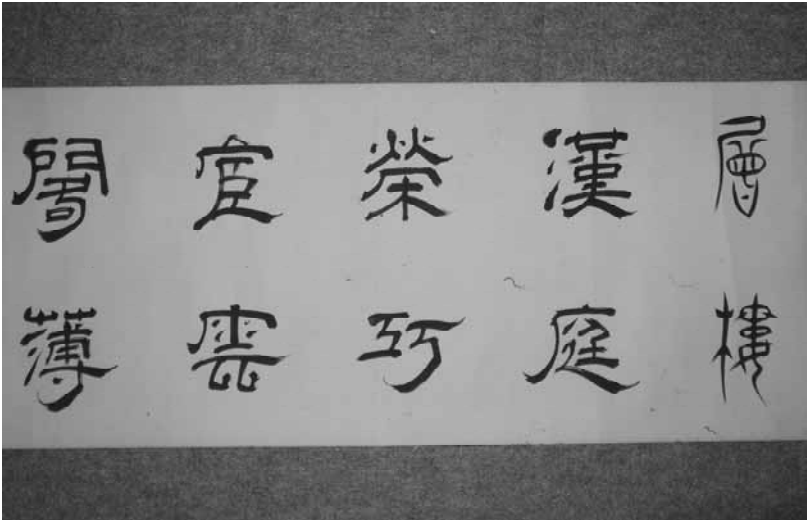 層樓
漢庭
榮巧
宦雲
閣薄